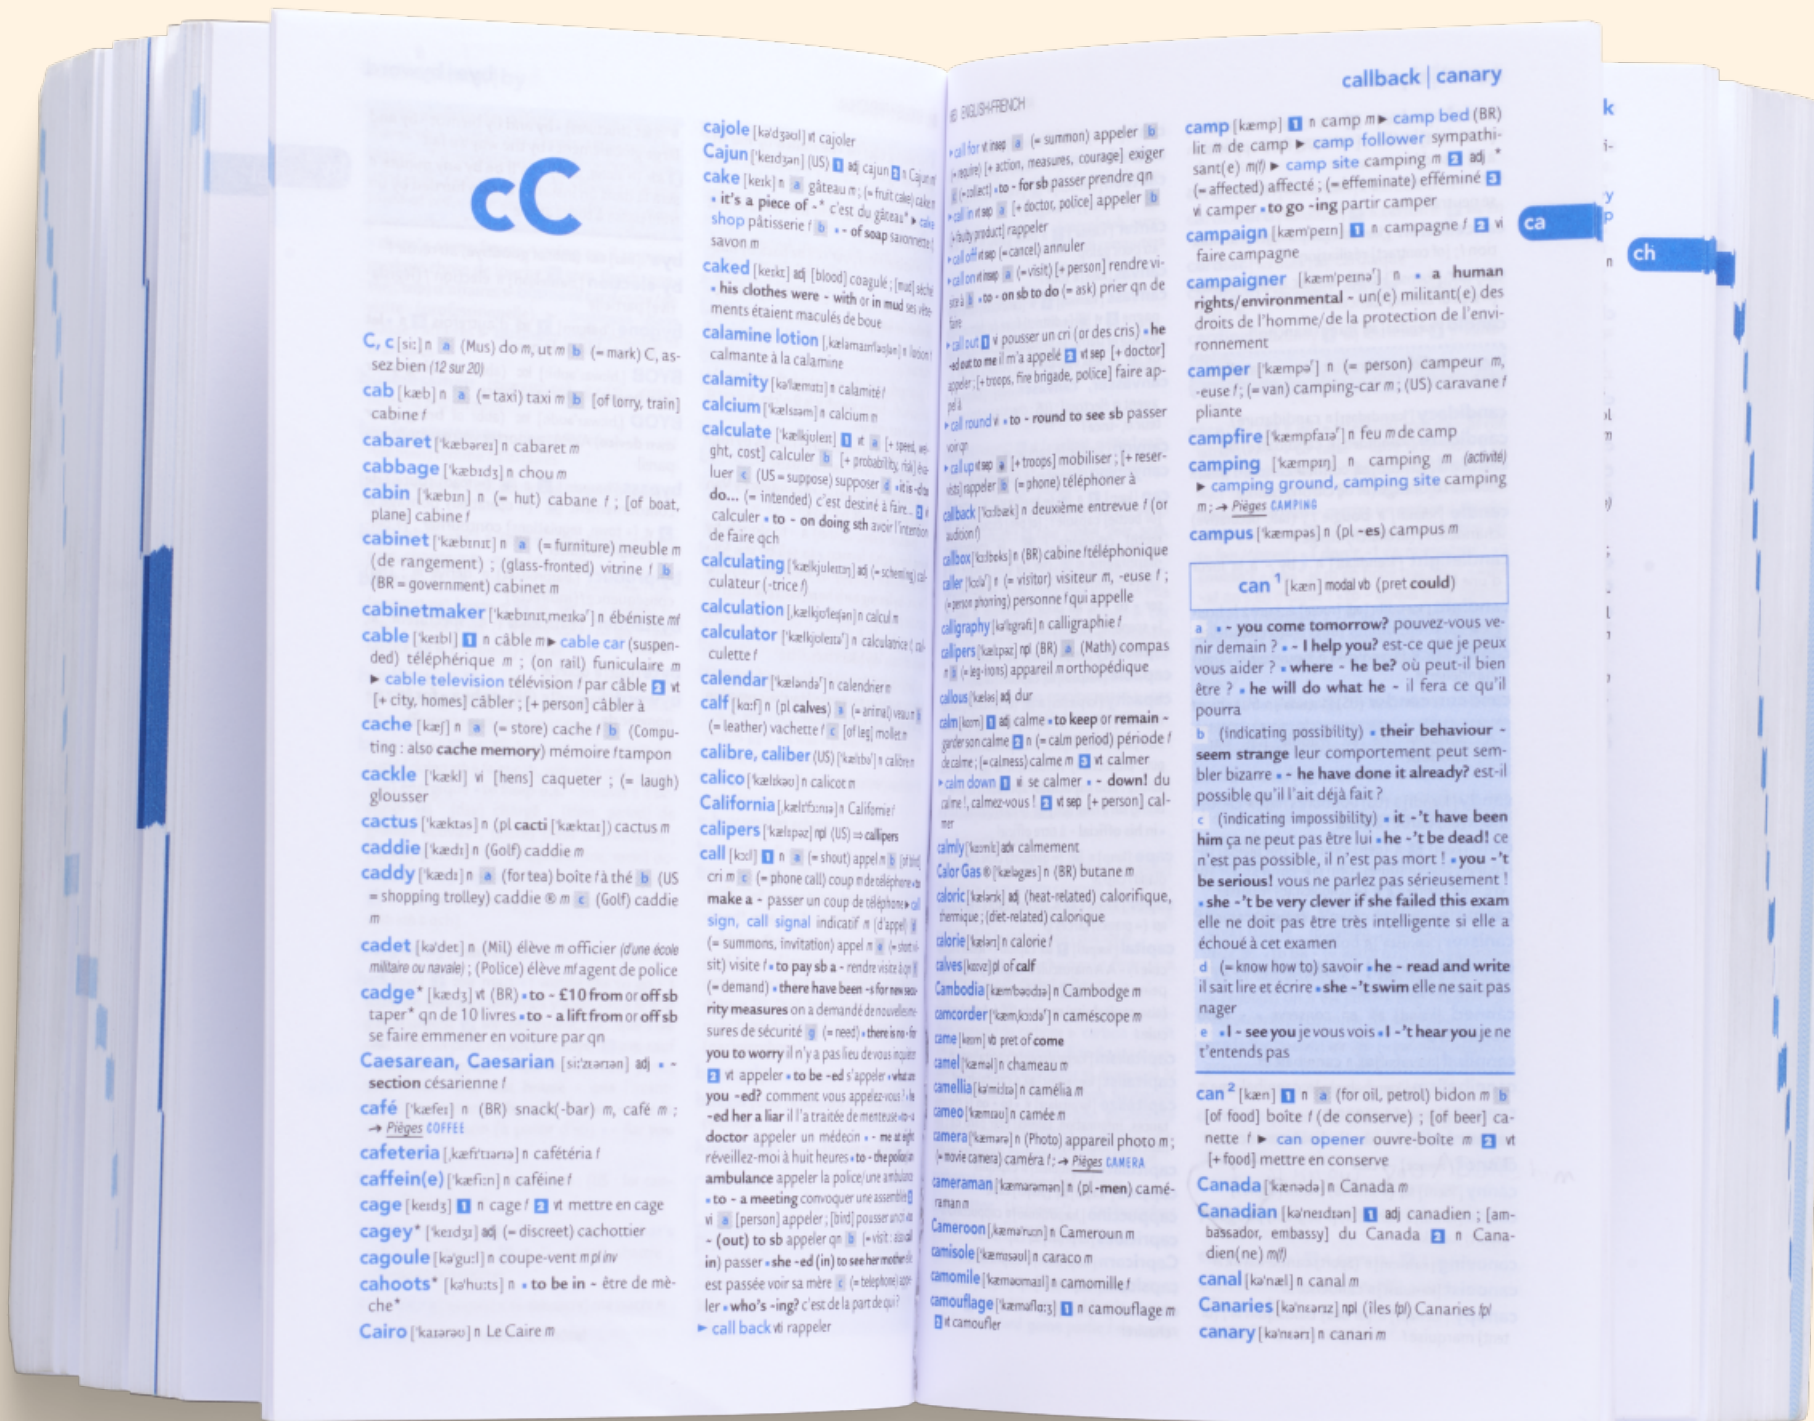 cC
C, c [siː] n a (Mus) do m, ut m b (= mark) C, as-
sez bien (12 sur 20)
cab [kæb] n a (= taxi) taxi m b [of lorry, train]
cabine f
cabaret ['kæbəreɪ] n cabaret m
cabbage ['kæbɪdʒ] n chou m
cabin ['kæbɪn] n (= hut) cabane f ; [of boat,
plane] cabine f
cabinet ['kæbɪnɪt] n a (= furniture) meuble m
(de rangement) ; (glass-fronted) vitrine f b
(BR = government) cabinet m
cabinetmaker ['kæbɪnɪt,meɪkəʳ] n ébéniste mf
cable ['keɪbl] 1 n câble m ► cable car (suspen-
ded) téléphérique m ; (on rail) funiculaire m
► cable television télévision f par câble 2 vt
[+ city, homes] câbler ; [+ person] câbler à
cache [kæʃ] n a (= store) cache f b (Compu-
ting : also cache memory) mémoire f tampon
cackle ['kækl] vi [hens] caqueter ; (= laugh)
glousser
cactus ['kæktəs] n (pl cacti ['kæktaɪ]) cactus m
caddie ['kædɪ] n (Golf) caddie m
caddy ['kædɪ] n a (for tea) boîte f à thé b (US
= shopping trolley) caddie ® m c (Golf) caddie
m
cadet [kə'det] n (Mil) élève m officier (d'une école
militaire ou navale) ; (Police) élève mf agent de police
cadge* [kædʒ] vt (BR) • to ~ £10 from or off sb
taper* qn de 10 livres • to ~ a lift from or off sb
se faire emmener en voiture par qn
Caesarean, Caesarian [siː'zɛərɪən] adj • ~
section césarienne f
café ['kæfeɪ] n (BR) snack(-bar) m, café m ;
→ Pièges COFFEE
cafeteria [,kæfɪ'tɪərɪə] n cafétéria f
caffein(e) ['kæfiːn] n caféine f
cage [keɪdʒ] 1 n cage f 2 vt mettre en cage
cagey* ['keɪdʒɪ] adj (= discreet) cachottier
cagoule [kə'guːl] n coupe-vent m pl inv
cahoots* [kə'huːts] n • to be in ~ être de mè-
che*
Cairo ['kaɪərəʊ] n Le Caire m
cajole [kə'dʒəʊl] vt cajoler
Cajun ['keɪdʒən] (US) 1 adj cajun 2 n Cajun
cake [keɪk] n a gâteau m ; (= fruit cake) cake
• it's a piece of ~* c'est du gâteau* ► cake
shop pâtisserie f b • ~ of soap savonnette f
savon m
caked [keɪkt] adj [blood] coagulé ; [mud] séché
• his clothes were ~ with or in mud ses vête-
ments étaient maculés de boue
calamine lotion [,kæləmaɪn'ləʊʃən] n lotion f
calmante à la calamine
calamity [kə'læmɪtɪ] n calamité f
calcium ['kælsɪəm] n calcium m
calculate ['kælkjʊleɪt] 1 vt a [+ speed, wei-
ght, cost] calculer b [+ probability, risk] éva-
luer c (US = suppose) supposer d • it is ~d to
do... (= intended) c'est destiné à faire... 2 vi
calculer • to ~ on doing sth avoir l'intention
de faire qch
calculating ['kælkjʊleɪtɪŋ] adj (= scheming) cal-
culateur (-trice f)
calculation [,kælkjʊ'leɪʃən] n calcul m
calculator ['kælkjʊleɪtəʳ] n calculatrice f, cal-
culette f
calendar ['kæləndəʳ] n calendrier m
calf [kɑːf] n (pl calves) a (= animal) veau m b
(= leather) vachette f c [of leg] mollet m
calibre, caliber (US) ['kælɪbəʳ] n calibre m
calico ['kælɪkəʊ] n calicot m
California [,kælɪ'fɔːnɪə] n Californie f
calipers ['kælɪpəz] npl (US) ⇒ callipers
call [kɔːl] 1 n a (= shout) appel m b [of bird]
cri m c (= phone call) coup m de téléphone • to
make a ~ passer un coup de téléphone ► call
sign, call signal indicatif m (d'appel) d
(= summons, invitation) appel m e (= short vi-
sit) visite f • to pay sb a ~ rendre visite à qn f
(= demand) • there have been ~s for new secu-
rity measures on a demandé de nouvelles me-
sures de sécurité g (= need) • there is no ~ for
you to worry il n'y a pas lieu de vous inquiéter
2 vt appeler • to be ~ed s'appeler • what are
you ~ed? comment vous appelez-vous ? • he
~ed her a liar il l'a traitée de menteuse • to ~ a
doctor appeler un médecin • ~ me at eight
réveillez-moi à huit heures • to ~ the police/an
ambulance appeler la police/une ambulance
• to ~ a meeting convoquer une assemblée 3
vi a [person] appeler ; [bird] pousser un cri • to
~ (out) to sb appeler qn b (= visit : also call
in) passer • she ~ed (in) to see her mother elle
est passée voir sa mère c (= telephone) appe-
ler • who's ~ing? c'est de la part de qui ?
► call back vti rappeler
ENGLISH-FRENCH
► call for vt insep a (= summon) appeler b
(= require) [+ action, measures, courage] exiger
c (= collect) • to ~ for sb passer prendre qn
► call in vt sep a [+ doctor, police] appeler b
[+ faulty product] rappeler
► call off vt sep (= cancel) annuler
► call on vt insep a (= visit) [+ person] rendre vi-
site à b • to ~ on sb to do (= ask) prier qn de
faire
► call out 1 vi pousser un cri (or des cris) • he
~ed out to me il m'a appelé 2 vt sep [+ doctor]
appeler ; [+ troops, fire brigade, police] faire ap-
pel à
► call round vi • to ~ round to see sb passer
voir qn
► call up vt sep a [+ troops] mobiliser ; [+ reser-
vists] rappeler b (= phone) téléphoner à
callback ['kɔːlbæk] n deuxième entrevue f (or
audition f)
callbox ['kɔːlbɒks] n (BR) cabine f téléphonique
caller ['kɔːləʳ] n (= visitor) visiteur m, -euse f ;
(= person phoning) personne f qui appelle
calligraphy [kə'lɪgrəfɪ] n calligraphie f
callipers ['kælɪpəz] npl (BR) a (Math) compas
m b (= leg-irons) appareil m orthopédique
callous ['kæləs] adj dur
calm [kɑːm] 1 adj calme • to keep or remain ~
garder son calme 2 n (= calm period) période f
de calme ; (= calmness) calme m 3 vt calmer
► calm down 1 vi se calmer • ~ down! du
calme !, calmez-vous ! 2 vt sep [+ person] cal-
mer
calmly ['kɑːmlɪ] adv calmement
Calor Gas ® ['kæləgæs] n (BR) butane m
caloric ['kælərɪk] adj (heat-related) calorifique,
thermique ; (diet-related) calorique
calorie ['kælərɪ] n calorie f
calves [kɑːvz] pl of calf
Cambodia [kæm'bəʊdɪə] n Cambodge m
camcorder ['kæm,kɔːdəʳ] n caméscope m
came [keɪm] vb pret of come
camel ['kæməl] n chameau m
camellia [kə'miːlɪə] n camélia m
cameo ['kæmɪəʊ] n camée m
camera ['kæmərə] n (Photo) appareil photo m ;
(= movie camera) caméra f ; → Pièges CAMERA
cameraman ['kæmərəmən] n (pl -men) camé-
raman m
Cameroon [,kæmə'ruːn] n Cameroun m
camisole ['kæmɪsəʊl] n caraco m
camomile ['kæməʊmaɪl] n camomille f
camouflage ['kæməflɑːʒ] 1 n camouflage m
2 vt camoufler
callback | canary
camp [kæmp] 1 n camp m ► camp bed (BR)
lit m de camp ► camp follower sympathi-
sant(e) m(f) ► camp site camping m 2 adj *
(= affected) affecté ; (= effeminate) efféminé 3
vi camper • to go ~ing partir camper
campaign [kæm'peɪn] 1 n campagne f 2 vi
faire campagne
campaigner [kæm'peɪnəʳ] n • a human
rights/environmental ~ un(e) militant(e) des
droits de l'homme/de la protection de l'envi-
ronnement
camper ['kæmpəʳ] n (= person) campeur m,
-euse f ; (= van) camping-car m ; (US) caravane f
pliante
campfire ['kæmpfaɪəʳ] n feu m de camp
camping ['kæmpɪŋ] n camping m (activité)
► camping ground, camping site camping
m ; → Pièges CAMPING
campus ['kæmpəs] n (pl -es) campus m
can ¹ [kæn] modal vb (pret could)
a • ~ you come tomorrow? pouvez-vous ve-
nir demain ? • ~ I help you? est-ce que je peux
vous aider ? • where ~ he be? où peut-il bien
être ? • he will do what he ~ il fera ce qu'il
pourra
b (indicating possibility) • their behaviour ~
seem strange leur comportement peut sem-
bler bizarre • ~ he have done it already? est-il
possible qu'il l'ait déjà fait ?
c (indicating impossibility) • it ~'t have been
him ça ne peut pas être lui • he ~'t be dead! ce
n'est pas possible, il n'est pas mort ! • you ~'t
be serious! vous ne parlez pas sérieusement !
• she ~'t be very clever if she failed this exam
elle ne doit pas être très intelligente si elle a
échoué à cet examen
d (= know how to) savoir • he ~ read and write
il sait lire et écrire • she ~'t swim elle ne sait pas
nager
e • I ~ see you je vous vois • I ~'t hear you je ne
t'entends pas
can ² [kæn] 1 n a (for oil, petrol) bidon m b
[of food] boîte f (de conserve) ; [of beer] ca-
nette f ► can opener ouvre-boîte m 2 vt
[+ food] mettre en conserve
Canada ['kænədə] n Canada m
Canadian [kə'neɪdɪən] 1 adj canadien ; [am-
bassador, embassy] du Canada 2 n Cana-
dien(ne) m(f)
canal [kə'næl] n canal m
Canaries [kə'nɛərɪz] npl (îles fpl) Canaries fpl
canary [kə'nɛərɪ] n canari m
ca
ch